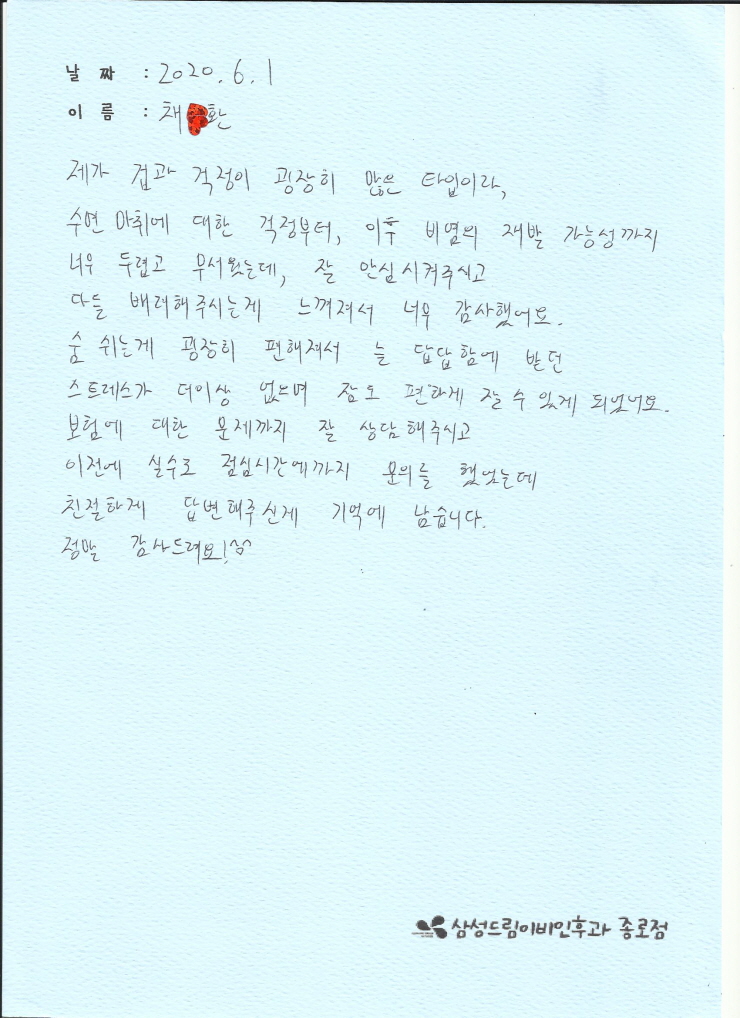 날 짜 : 2020. 6. 1
이 름 : 채 환
제가 겁과 걱정이 굉장히 많은 타입이라,
수면 마취에 대한 걱정부터, 이후 비염의 재발 가능성까지
너무 두렵고 무서웠는데, 잘 안심시켜주시고
다들 배려해주시는게 느껴져서 너무 감사했어요.
숨 쉬는게 굉장히 편해져서 늘 답답함에 받던
스트레스가 더이상 없으며 잠도 편하게 잘 수 있게 되었어요.
보험에 대한 문제까지 잘 상담해주시고
이전에 실수로 점심시간에까지 문의를 했었는데
친절하게 답변해주신게 기억에 남습니다.
정말 감사드려요!^^
삼성드림이비인후과 종로점